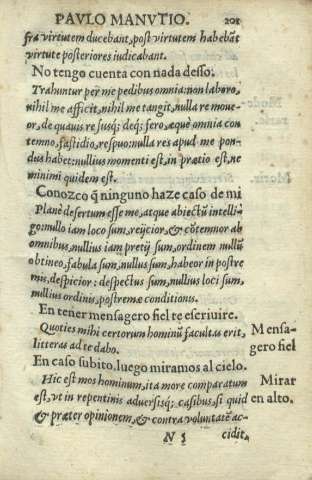 PAVLO MANVTIO. 201
fra virtutem ducebant, post virtutem habebãt
virtute posteriores iudicabant.
No tengo cuenta con nada desso.
Trahuntur per me pedibus omnia: non laboro,
nihil me afficit, nihil me tangit, nulla re moueor,
de quauis re susq; deq; fero, æquè omnia contemno,
fastidio, respuo: nulla res apud me pondus
habet: nullius momenti est, in prætio est, ne
minimi quidem est.
Conozco q̃ ninguno haze caso de mi
Planè desertum esse me, atque abiectũ intelligo:
nullo iam loco sum, reijcior, & cõtemnor ab
omnibus, nullius iam pretij sum, ordinem nullũ
obtineo, fabula sum, nullus sum, habeor in postremis,
despicior: despectus sum, nullius loci sum,
nullius ordinis, postremæ conditionis.
En tener mensagero fiel te escriuire.
Quoties mihi certorum hominũ facultas erit, Mensa-
litteras ad te dabo. gero fiel
En caso subito, luego miramos al cielo.
Hic est mos hominum, ita more comparatum Mirar
est, vt in repentinis aduersisq; casibus, si quid en alto.
& præter opinionem, & contra voluntatẽ ac-
N 5 cidit,